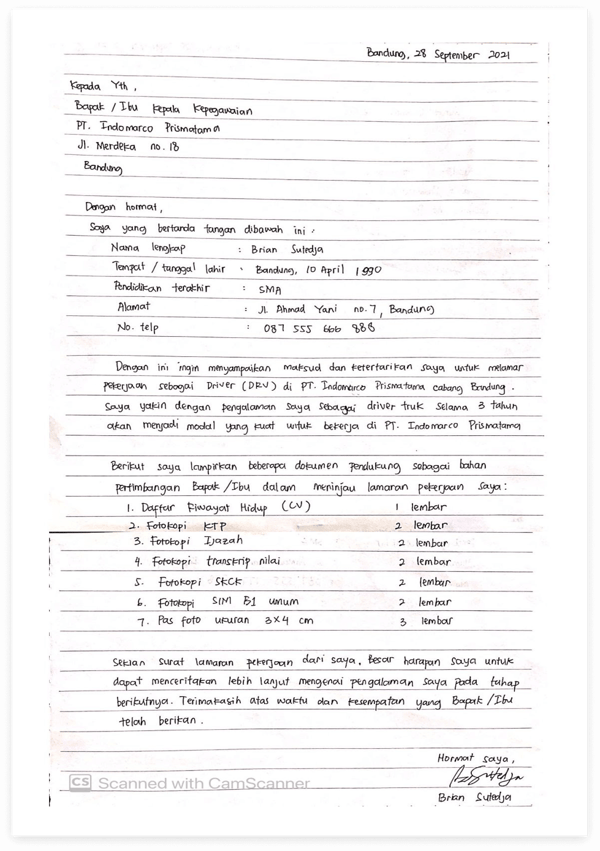 Bandung, 28 September 2021
Kepada Yth,
Bapak / Ibu Kepala Kepegawaian
PT. Indomarco Prismatama
Jl. Merdeka no. 18
Bandung
Dengan hormat,
Saya yang bertanda tangan dibawah ini :
Nama lengkap : Brian Sutedja
Tempat / tanggal lahir : Bandung, 10 April 1990
Pendidikan terakhir : SMA
Alamat : Jl. Ahmad Yani no. 7, Bandung
No. telp : 087 555 666 888
Dengan ini ingin menyampaikan maksud dan ketertarikan saya untuk melamar
pekerjaan sebagai Driver (DRV) di PT. Indomarco Prismatama cabang Bandung.
Saya yakin dengan pengalaman saya sebagai driver truk selama 3 tahun
akan menjadi modal yang kuat untuk bekerja di PT. Indomarco Prismatama
Berikut saya lampirkan beberapa dokumen pendukung sebagai bahan
pertimbangan Bapak / Ibu dalam meninjau lamaran pekerjaan saya :
1. Daftar Riwayat Hidup (CV) 1 lembar
2. Fotokopi KTP 2 lembar
3. Fotokopi Ijazah 2 lembar
4. Fotokopi transkrip nilai 2 lembar
5. Fotokopi SKCK 2 lembar
6. Fotokopi SIM B1 umum 2 lembar
7. Pas foto ukuran 3x4 cm 3 lembar
Sekian surat lamaran pekerjaan dari saya, besar harapan saya untuk
dapat menceritakan lebih lanjut mengenai pengalaman saya pada tahap
berikutnya. Terimakasih atas waktu dan kesempatan yang Bapak / Ibu
telah berikan.
Hormat saya,
Brian Sutedja
CS Scanned with CamScanner